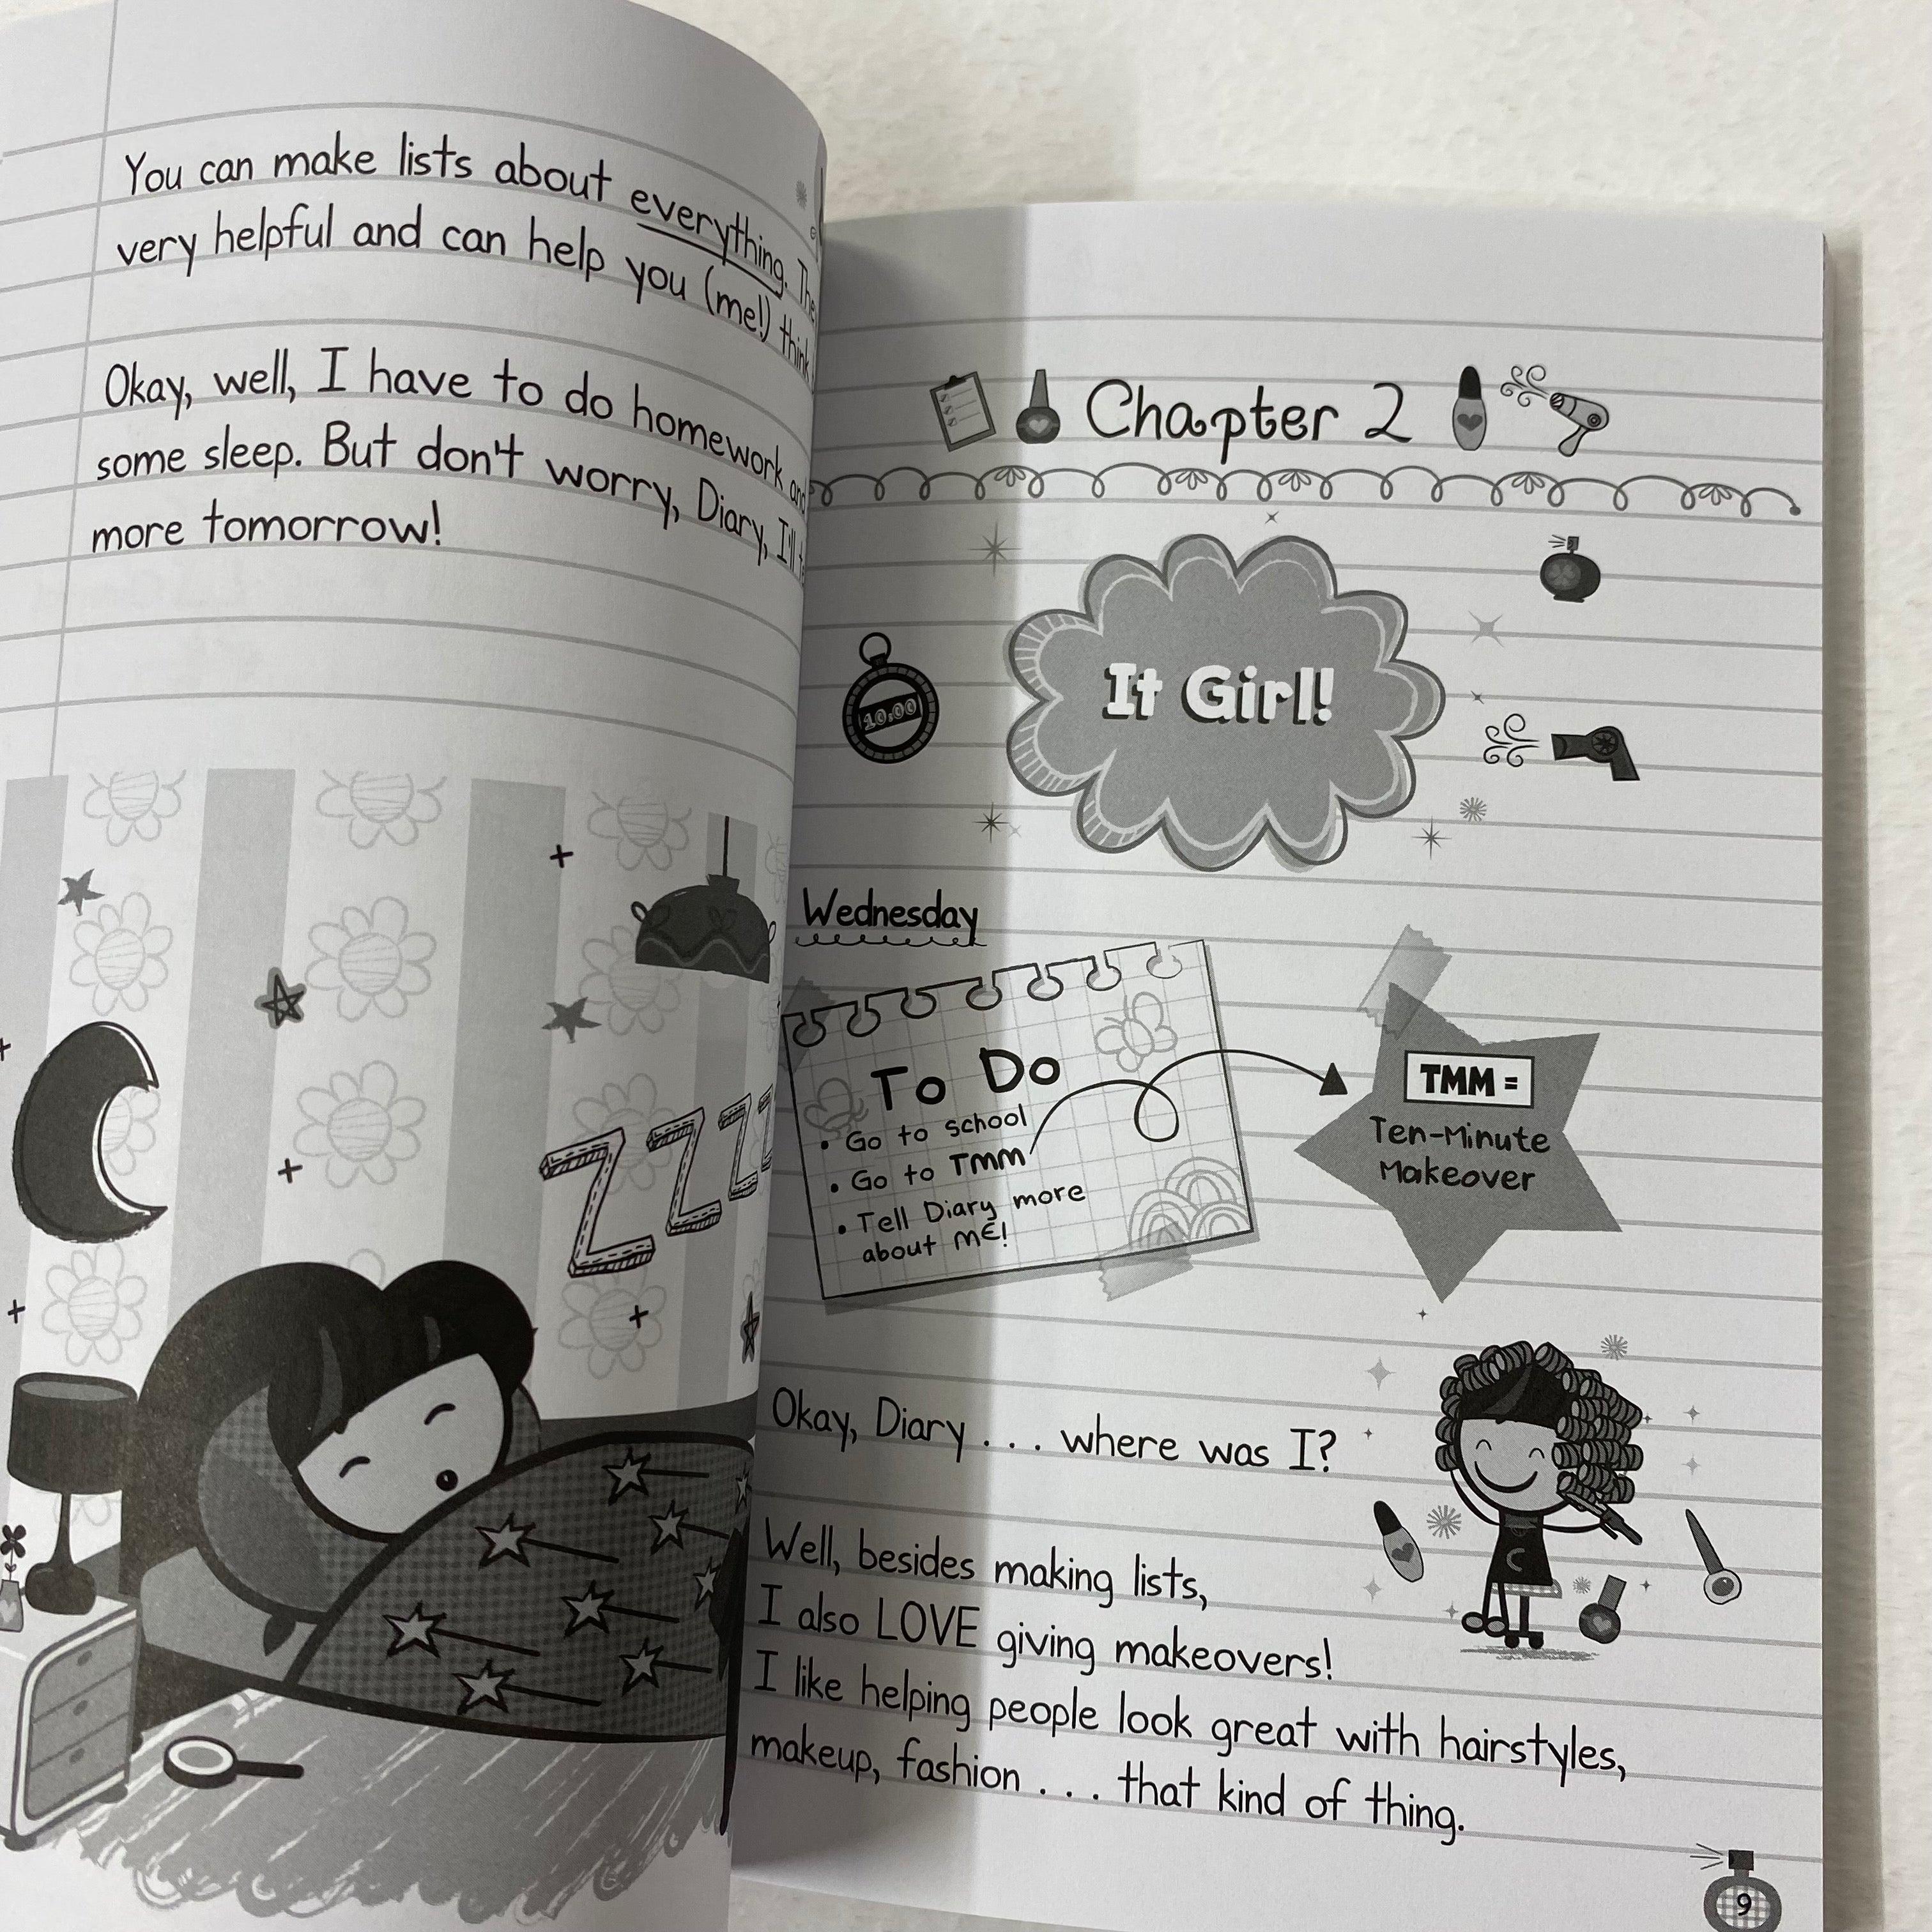 You can make lists about everything.
very helpful and can help you (me!) think
Okay, well, I have to do homework and
some sleep. But don't worry, Diary, I'll
more tomorrow!
ZZZ
Chapter 2
It Girl!
10:00
Wednesday
To Do
• Go to school
• Go to TMM
• Tell Diary more
about ME!
TMM =
Ten-Minute
Makeover
Okay, Diary . . . where was I?
Well, besides making lists,
I also LOVE giving makeovers!
I like helping people look great with hairstyles,
makeup, fashion . . . that kind of thing.
9